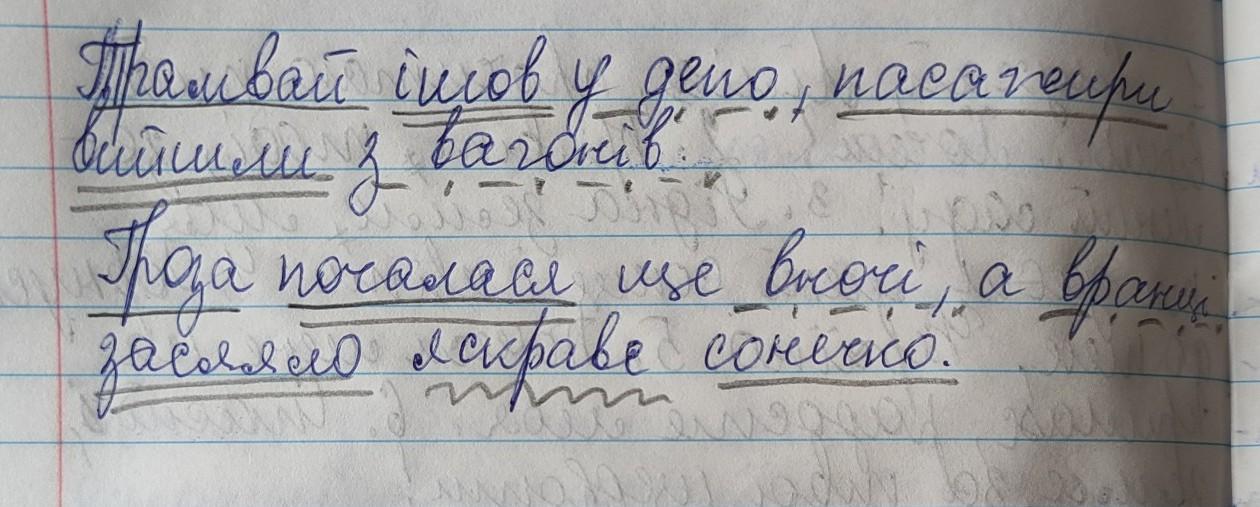 Трамвай ішов у депо, пасажири
вийшли з вагонів.
Гроза почалася ще вночі, а вранці
засяяло яскраве сонечко.